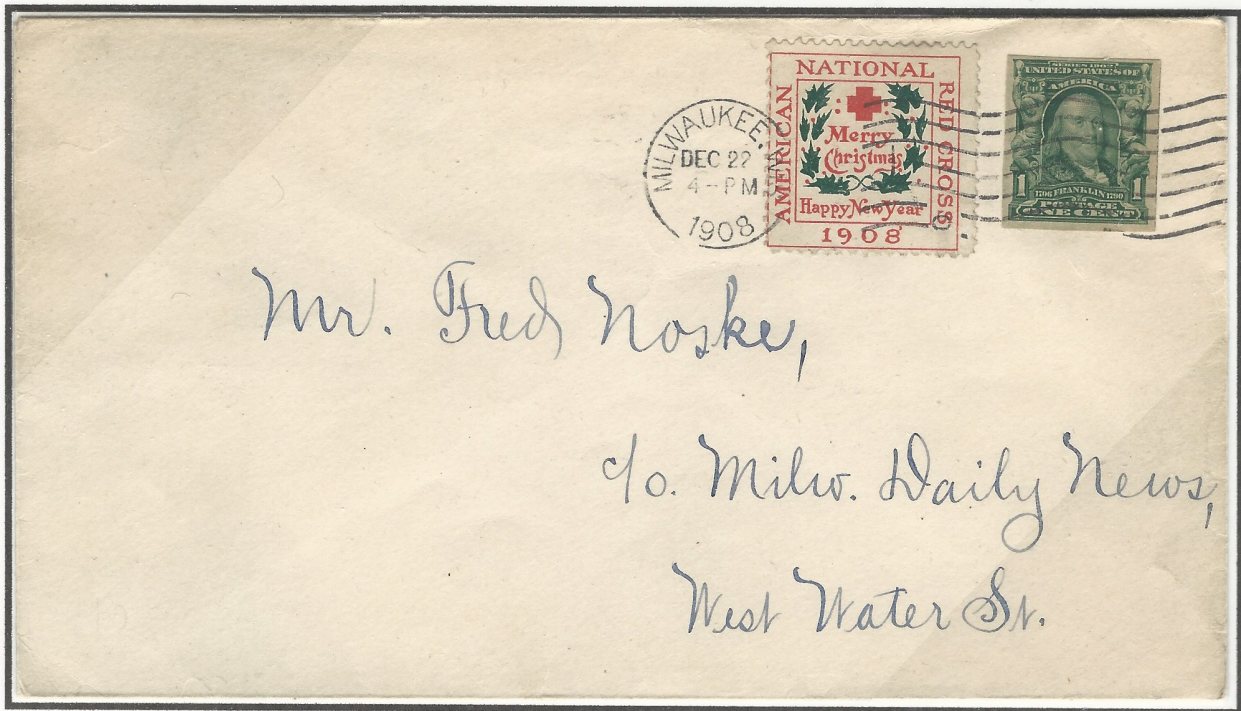 MILWAUKEE, WIS.
DEC 22
4-PM
1908
AMERICAN
NATIONAL
RED CROSS
Merry
Christmas
Happy New Year
1908
SERIES 1902
UNITED STATES OF
AMERICA
1706 FRANKLIN 1790
1 POSTAGE 1
ONE CENT
Mr. Fred Noske,
c/o. Milw. Daily News,
West Water St.